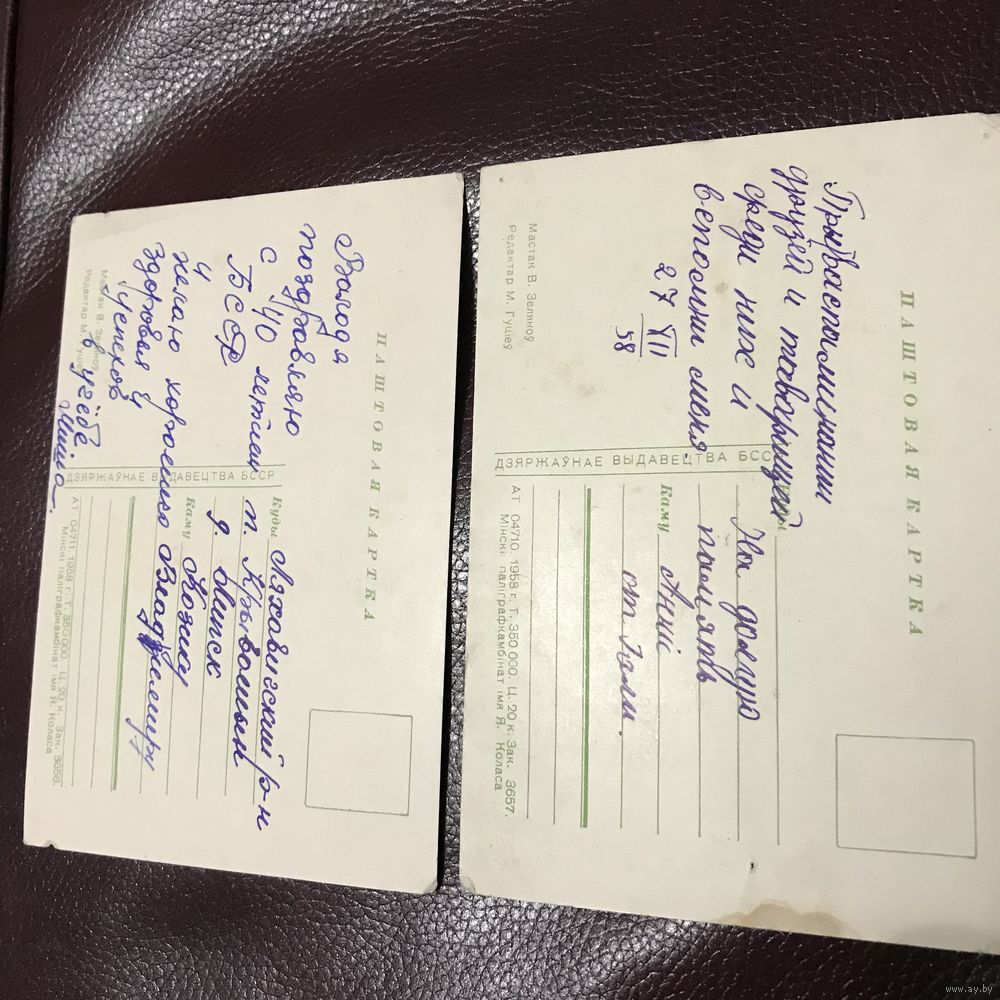 ПАШТОВАЯ КАРТКА
Валодя
поздравляю
с 40 летием
БССР
и
желаю хорошего
здоровья и
успехов
в учёбе
Миша.
Мастак В. Зеляноў
Редактар М. Гуціеў
ДЗЯРЖАЎНАЕ ВЫДАВЕЦТВА БССР
Куды Ляховичский р-н
п. Кривошин
д. Минск
Каму
Владимиру
АТ 04711. 1958 г. Т. 350 000. Ц. 20 к. Зак. 3656.
Мінскі паліграфкамбінат імя Я. Коласа
ПАШТОВАЯ КАРТКА
При воспоминании
друзей и товарищей
среди них и
вспомни меня.
27 XII
58
Мастак В. Зеляноў
Редактар М. Гуціеў
ДЗЯРЖАЎНАЕ ВЫДАВЕЦТВА БССР
На долгую
память
Каму Анні
от Гали.
АТ 04710. 1958 г. Т. 350 000. Ц. 20 к. Зак. 3657.
Мінскі паліграфкамбінат імя Я. Коласа
www.ay.by